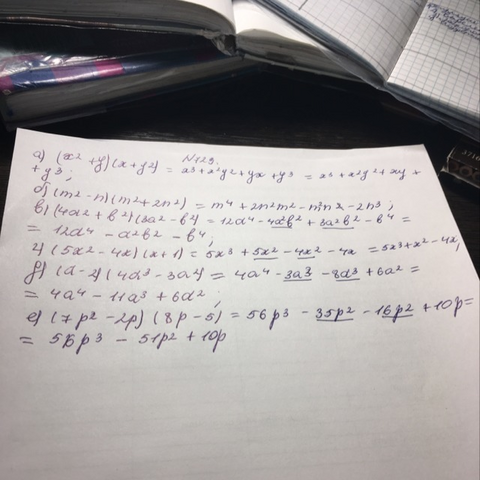 N 129.
а) (x² + y)(x + y²) = x³ + x²y² + yx + y³ = x³ + x²y² + xy +
+ y³;
б) (m² - n)(m² + 2n²) = m⁴ + 2n²m² - m²n - 2n³;
в) (4a² + b²)(3a² - b²) = 12a⁴ - 4a²b² + 3a²b² - b⁴ =
= 12a⁴ - a²b² - b⁴;
г) (5x² - 4x)(x + 1) = 5x³ + 5x² - 4x² - 4x = 5x³ + x² - 4x;
д) (a - 2)(4a³ - 3a²) = 4a⁴ - 3a³ - 8a³ + 6a² =
= 4a⁴ - 11a³ + 6a²;
е) (7p² - 2p)(8p - 5) = 56p³ - 35p² - 16p² + 10p =
= 56p³ - 51p² + 10p